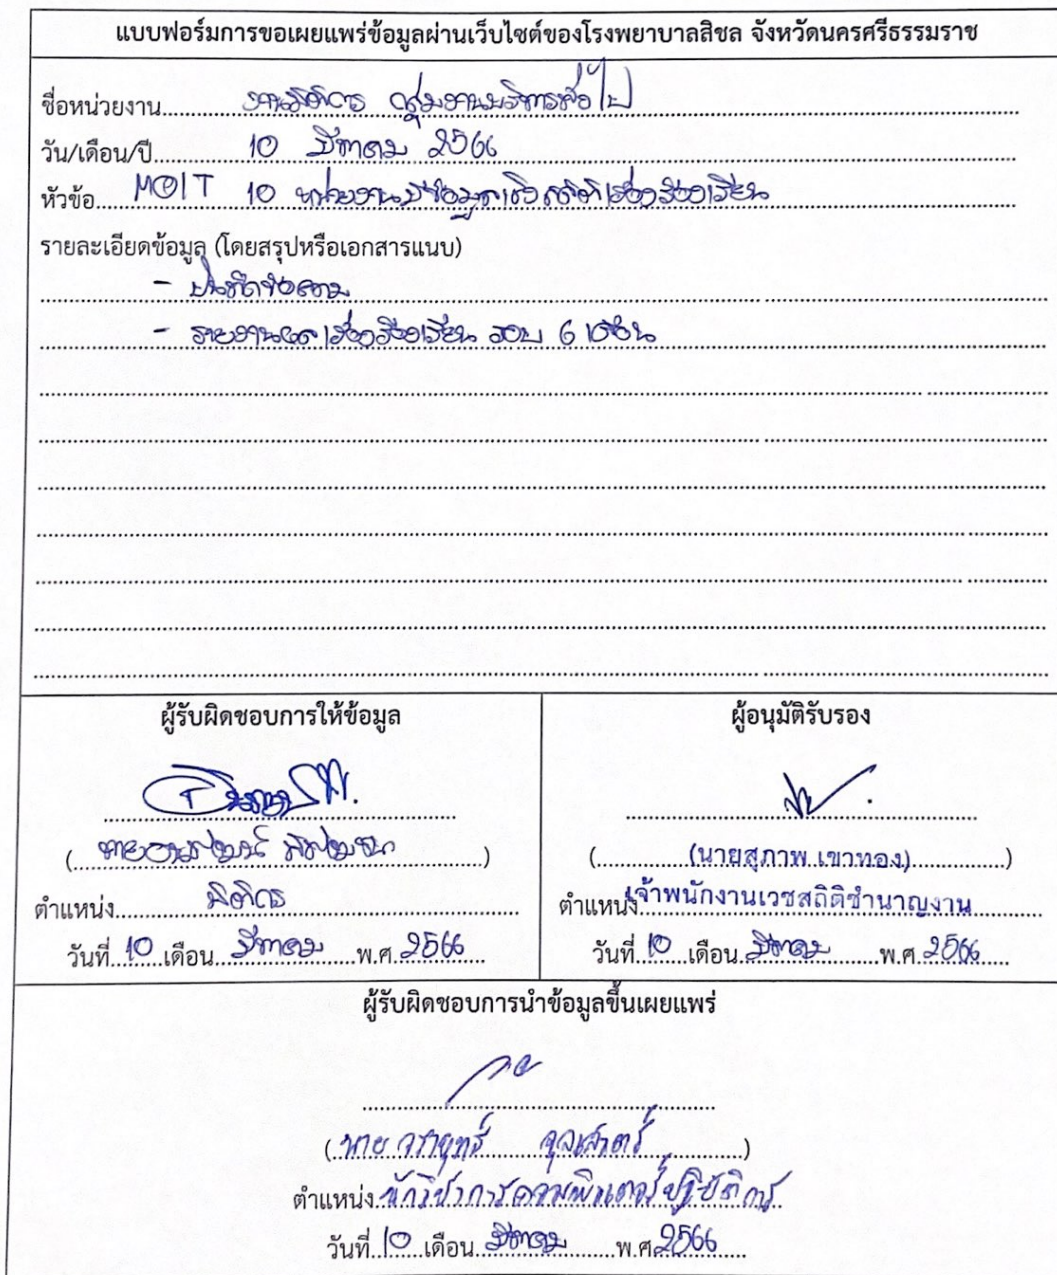 แบบฟอร์มการขอเผยแพร่ข้อมูลผ่านเว็บไซต์ของโรงพยาบาลสิชล จังหวัดนครศรีธรรมราช
ชื่อหน่วยงาน งานนิติการ กลุ่มงานบริหารทั่วไป
วัน/เดือน/ปี 10 มีนาคม 2566
หัวข้อ MOIT 10 หน่วยงานมีข้อมูลเชิงสถิติเรื่องร้องเรียน
รายละเอียดข้อมูล (โดยสรุปหรือเอกสารแนบ)
- บันทึกข้อความ
- รายงานผลเรื่องร้องเรียน รอบ 6 เดือน
ผู้รับผิดชอบการให้ข้อมูล
( )
ตำแหน่ง นิติกร
วันที่ 10 เดือน มีนาคม พ.ศ. 2566
ผู้อนุมัติรับรอง
( (นายสุภาพ เขาทอง) )
ตำแหน่ง เจ้าพนักงานเวชสถิติชำนาญงาน
วันที่ 10 เดือน มีนาคม พ.ศ. 2566
ผู้รับผิดชอบการนำข้อมูลขึ้นเผยแพร่
( นาย )
ตำแหน่ง นักวิชาการคอมพิวเตอร์ปฏิบัติการ
วันที่ 10 เดือน มีนาคม พ.ศ. 2566